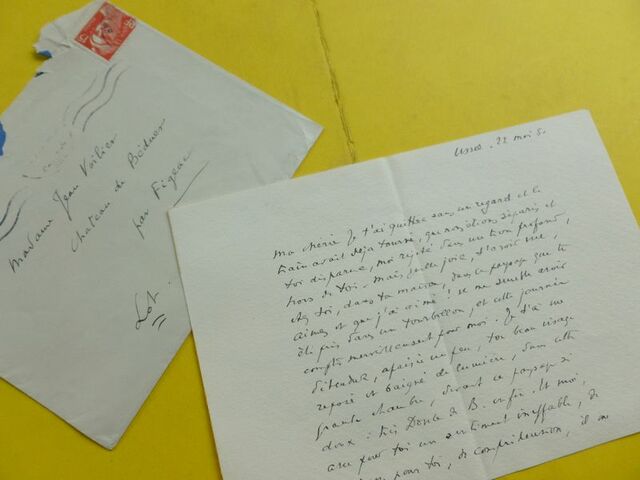 Madame Jean Voilier
Chateau de Béduer
par Figeac
Lot.
Ussel. 22 mai 5.
ma chérie Je t'ai quittée sans un regard et le
train avait déjà tourné, que nous étions séparés et
toi disparue, moi rejeté dans un bien profond,
hors de toi. Mais quelle joie, t'avoir vue,
chez toi, dans ta maison, dans ce paysage que tu
aimes et que j'ai aimé! Il me semble avoir
été pris dans un tourbillon, et cette journée
compte merveilleusement pour moi. Je t'ai vue
détendue, apaisée un peu, ton beau visage
reposé et baigné de lumière, dans cette
grande chambre, devant ce paysage si
doux: de B. enfin. Et moi,
avec pour toi un sentiment ineffable, de
pour toi, de compréhension, il